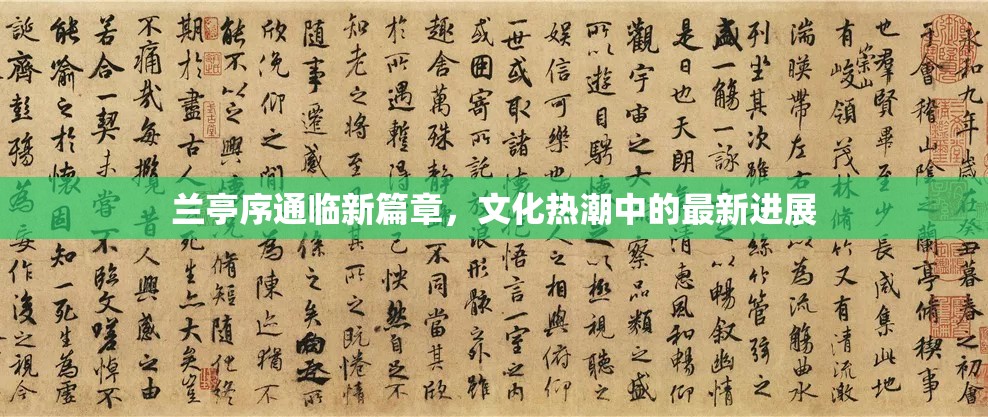 永和九年歲在癸丑暮春之初會
于會稽山陰之蘭亭脩稧事
也羣賢畢至少長咸集此地
有崇山峻領茂林脩竹又有清流激
湍暎帶左右以為流觴曲水
列坐其次雖絲竹管弦之
盛一觴一詠以暢叙幽情
是日也天朗清惠風和暢仰
觀宇宙之察品類之盛
所以遊目騁以極視聽之
娛信可樂也人之相與俯仰
一世或取諸懷抱悟言一室之内
或因寄所託浪形骸之外雖
趣舍萬殊静不同當其欣
於所遇蹔得己怏然自足不
知老之將至其所之既惓情
隨事遷感係之矣向之所
欣俛仰之閒為陳迹猶不
能不以之興懷脩短隨化終
期於盡古人死生亦大矣豈
不痛哉每攬昔人興感之由
若合一契未嘗不臨文嗟悼不
能喻之於懷固知一死生為虛
誕齊彭殤為妄作後之視今
兰亭序通临新篇章，文化热潮中的最新进展